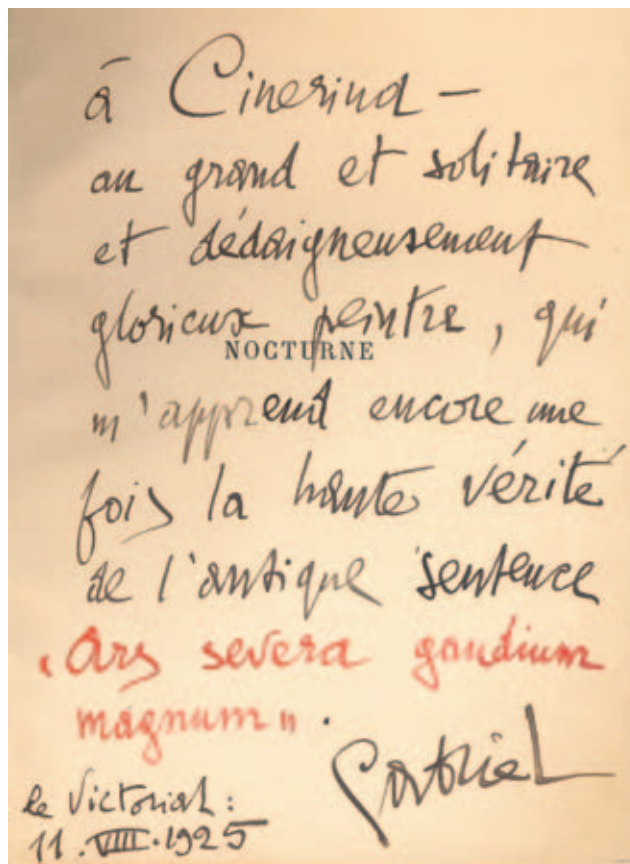 à Cinerina —
au grand et solitaire
et dédaigneusement
glorieux peintre, qui
NOCTURNE
m'apprend encore une
fois la haute vérité
de l'antique sentence
«Ars severa gaudium
magnum».
Gabriel
le Victorial :
11.VIII.1925